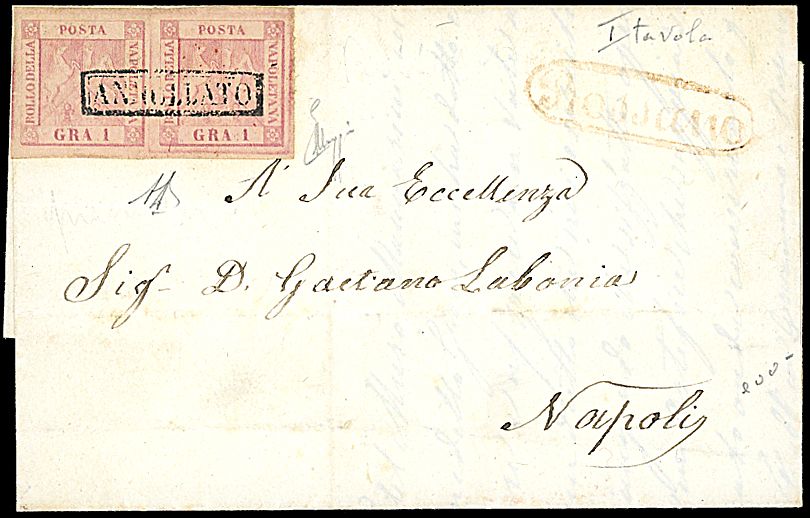 POSTA POSTA
BOLLO DELLA NAPOLETANA BOLLO DELLA NAPOLETANA
ANNULLATO
GRA 1 GRA 1
I tavola
Rossano
A' Sua Eccellenza
Sigr. D. Gaetano Labonia
Napoli